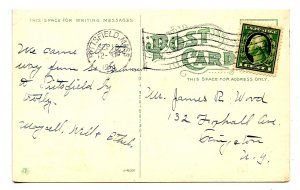 THIS SPACE FOR WRITING MESSAGES
POST CARD
THIS SPACE FOR ADDRESS ONLY.
PITTSFIELD, MASS.
We came
way from So.
to Pittsfield by
trolley.
Myself, Will & Ethel.
Mr. James R. Wood
132 Foxhall Ave
Kingston
N.Y.